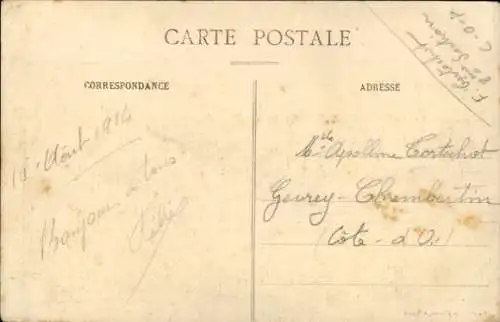 CARTE POSTALE
CORRESPONDANCE
ADRESSE
Août 1914
Bonjour à tous
Melle Apolline Tortochot
Gevrey-Chambertin
(Côte-d'Or)